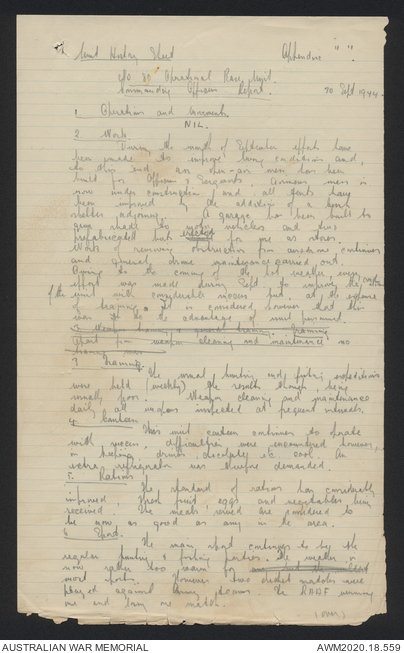 Unit History Sheet Appendix " ".
No 20 Operational Base Unit.
Commanding Officers Report. 30 Sept 1944.
1 Operations and Movements.
NIL.
2 Works.
During the month of September efforts have
been made to improve living conditions and,
to this end, an open-air mess has been
built for Officers & Sergeants. Airmens mess is
now under construction, and all tents have
been improved by the addition of a
adjoining. A garage has been built to
give shade to vehicles and two
prefabricated huts erected for use as stores.
Work of removing obstructions from continues
and drain maintenance carried out.
Owing to the coming of the wet weather every
effort was made during Sept. to improve the condition
of the unit with considerable success but at the expense
of training. It is considered however that this
was to the advantage of unit personnel.
Training
Apart from weapon cleaning and maintenance no
3 Training.
The usual hunting and fishing expeditions
were held (weekly) the results though being
usually poor. Weapon cleaning and maintenance
daily, all weapons inspected at frequent intervals.
4 Canteen
This unit canteen continues to operate
with success, difficulties were encountered however,
in keeping drinks, chocolates etc. cool. An
extra refrigerator was therefore demanded.
5. Rations
The standard of rations has considerably
improved. Fresh fruit, eggs and vegetables being
received. The meals served are considered to
be now as good as any in the area.
6 Sport.
The main sport continues to be the
regular hunting & fishing parties the weather is
now rather too warm for
most sports. However two cricket matches were
played against Army teams. The RAAF winning
one and losing one match.
(over)
AUSTRALIAN WAR MEMORIAL
AWM2020.18.559